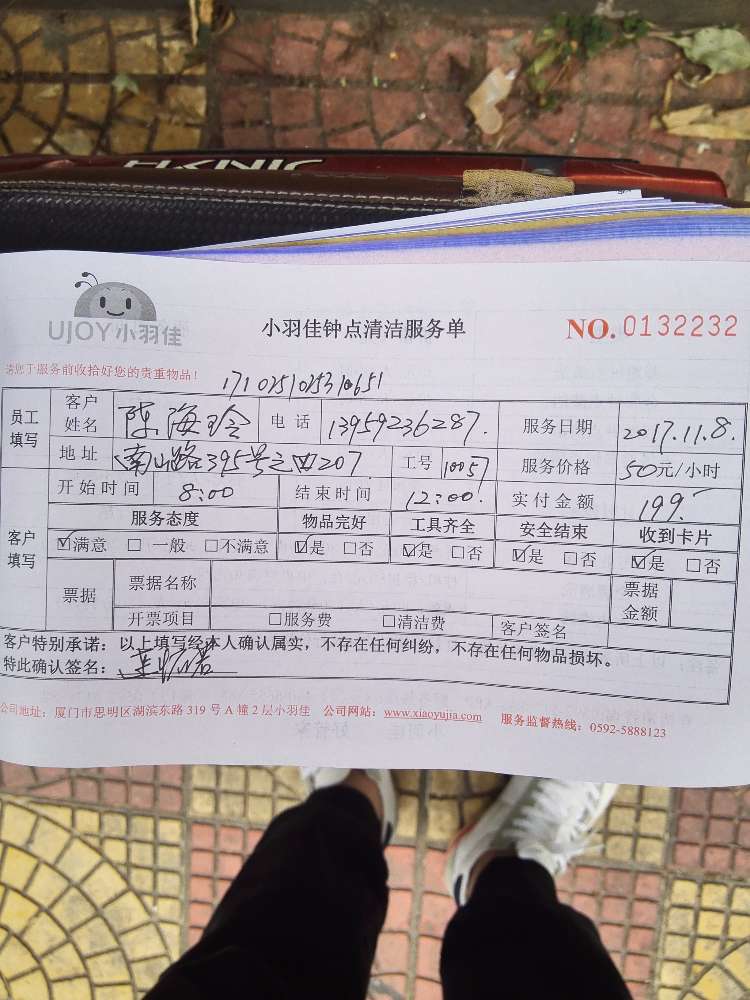 UJOY小羽佳
小羽佳钟点清洁服务单
NO. 0132232
请您于服务前收拾好您的贵重物品！
员工填写 客户姓名 陈海玲 电话 13959236287. 服务日期 2017.11.8.
地址 南山路395号之四207. 工号 10057 服务价格 50元/小时
客户填写 开始时间 8:00 结束时间 12:00. 实付金额 199.
服务态度 物品完好 工具齐全 安全结束 收到卡片
☑满意 □一般 □不满意 ☑是 □否 ☑是 □否 ☑是 □否 ☑是 □否
票据 票据名称 票据金额
开票项目 □服务费 □清洁费 客户签名
客户特别承诺：以上填写经本人确认属实，不存在任何纠纷，不存在任何物品损坏。
特此确认签名：
公司地址：厦门市思明区湖滨东路 319 号 A 幢 2 层小羽佳 公司网站：www.xiaoyujia.com 服务监督热线：0592-5888123